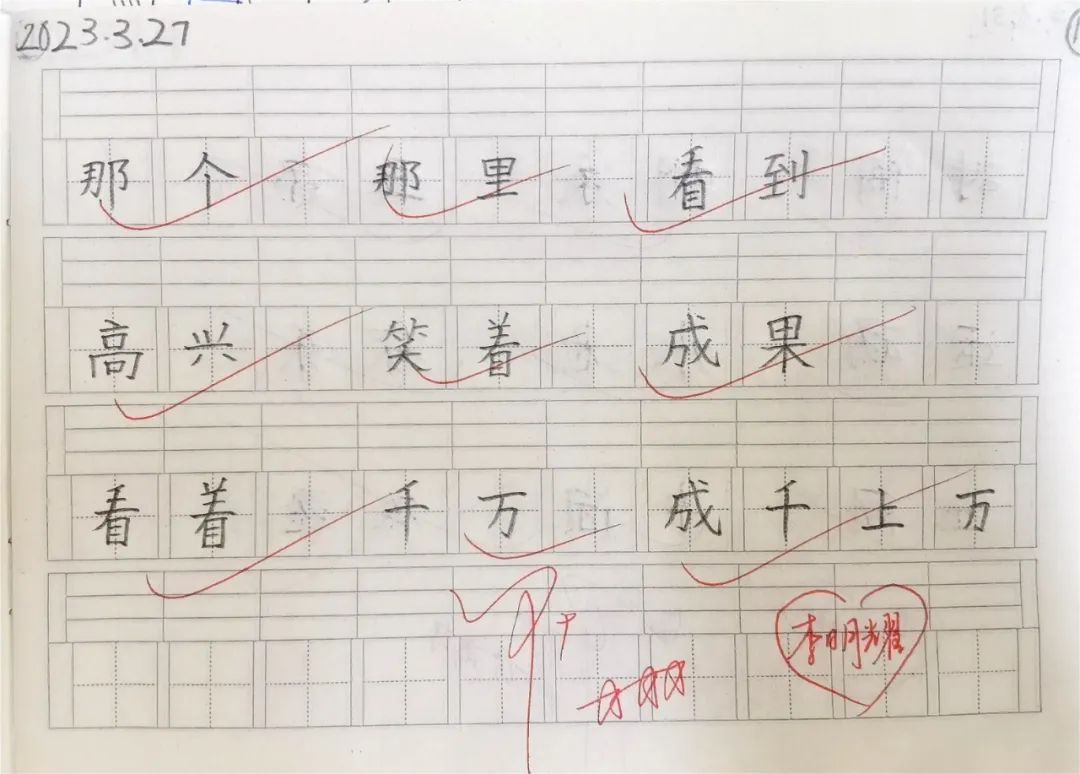 2023.3.27
那个 那里 看到
高兴 笑着 成果
看着 千万 成千上万
李明耀